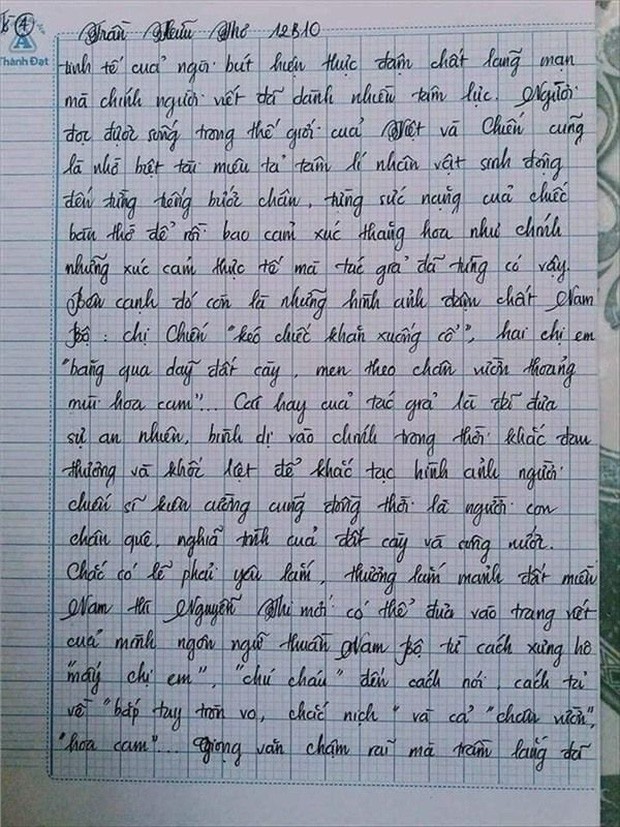 Tờ 4
Thành Đạt
Trần Hữu Thơ 12B10
tinh tế của ngòi bút hiện thực đậm chất lãng mạn
mà chính người viết đã dành nhiều tâm lực. Người
đọc được sống trong thế giới của Việt và Chiến cũng
là nhờ biệt tài miêu tả tâm lí nhân vật sinh động
đến từng tiếng bước chân, từng sức nặng của chiếc
bàn thờ để rồi bao cảm xúc thăng hoa như chính
những xúc cảm thực tế mà tác giả đã từng có vậy.
Bên cạnh đó còn là những hình ảnh đậm chất Nam
Bộ: chị Chiến "kéo chiếc khăn xuống cổ", hai chị em
"băng qua dãy đất cày, men theo chân vườn thoảng
mùi hoa cam"... Cái hay của tác giả là đã đưa
sự an nhiên, bình dị vào chính trong thời khắc đau
thương và khốc liệt để khắc tạc hình ảnh người
chiến sĩ kiên cường cũng đồng thời là người con
chân quê, nghĩa tình của đất cày và sông nước.
Chắc có lẽ phải yêu lắm, thương lắm mảnh đất miền
Nam thì Nguyễn Thi mới có thể đưa vào trang viết
của mình ngôn ngữ thuần Nam Bộ từ cách xưng hô
"mấy chị em", "chú cháu" đến cách nói, cách tả
về "bắp tay tròn vo, chắc nịch" và cả "chân vườn",
"hoa cam"... Giọng văn chậm rãi mà trầm lắng đã